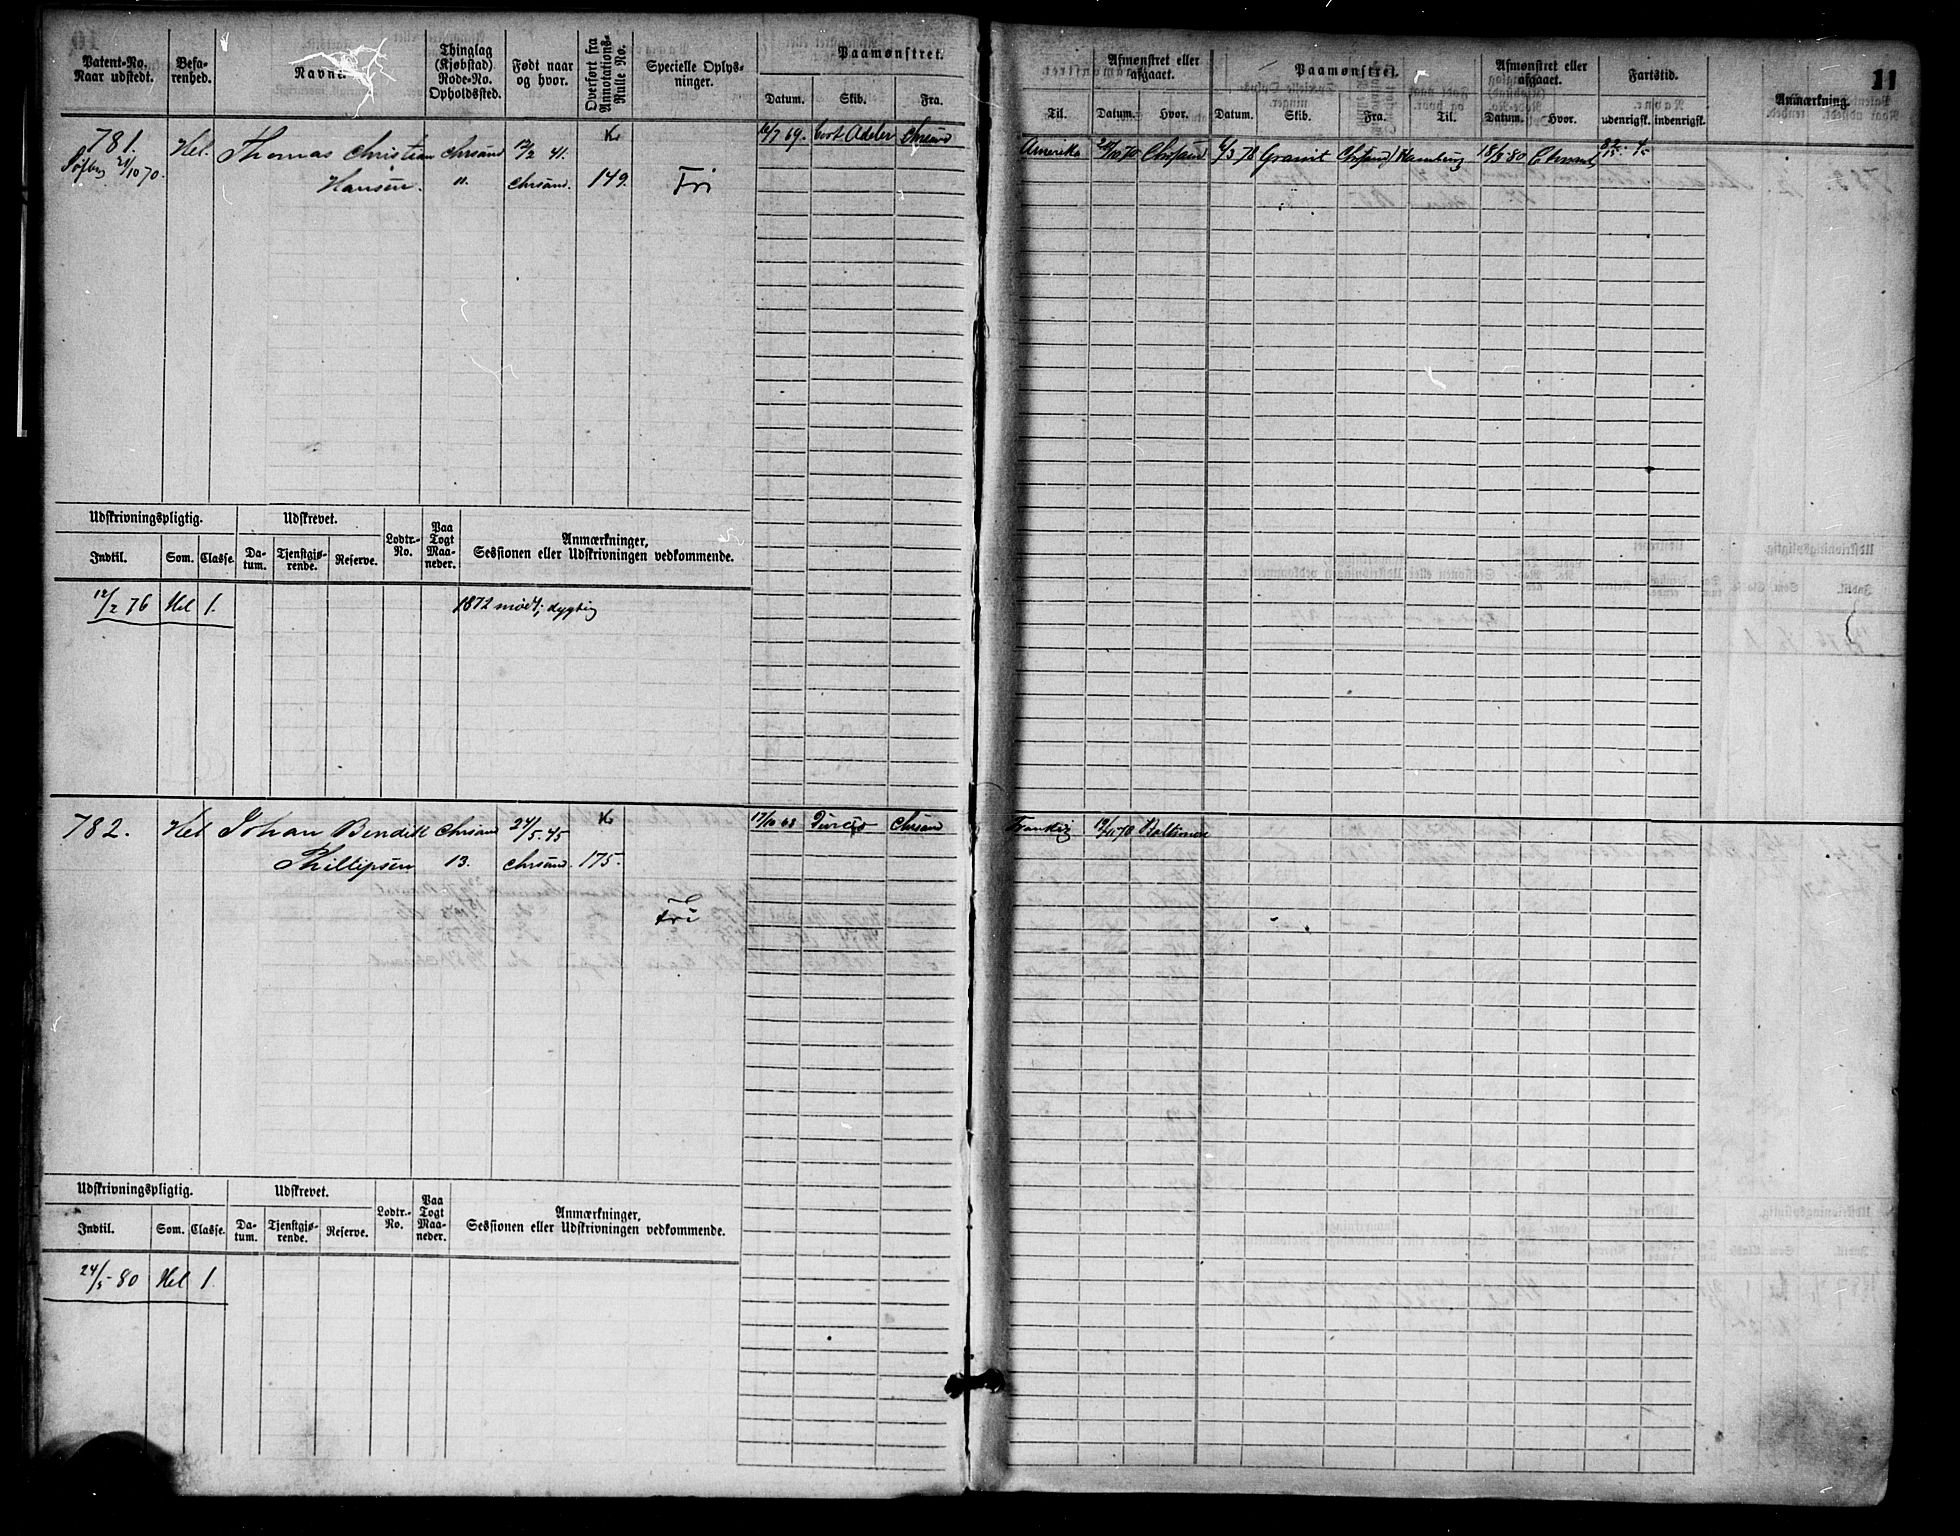 11
Patent-No. Naar udstedt.
Befarenhed.
Navn.
Thinglag (Kjøbstad) Rode-No. Opholdssted.
Født naar og hvor.
Overført fra Annotations-Rulle No.
Specielle Oplysninger.
Paamønstret.
Datum. Skib. Fra. Til.
Afmønstret eller afgaaet.
Datum. Hvor.
Paamønstret.
Datum. Skib. Fra. Til.
Afmønstret eller afgaaet.
Datum. Hvor.
Fartstid.
udenrigsk. indenrigsk.
Anmærkning.
781. Hel. Thomas Christian Chrsand 12/2 41. 16/7 69. Cort Adeler Chrsand Amerika 10 70 Chrsand 6/3 78 Granit Chrsand Hamburg 18/8 80
21/10 70. Hansen. 11. Chrsand. 149. Fri
Udskrivningspligtig. Udskrevet. Lodtr.-No. Paa Togt Maaneder. Anmærkninger, Sessionen eller Udskrivningen vedkommende.
Indtil. Som. Classe. Datum. Tjenstgjørende. Reserve.
12/2 76 Hel 1. 1872 mødt; dygtig
782. Hel Johan Bendik Chrsand 24/5 45 17/10 68 Chrsand 70 Baltimore
Phillipsen 13. Chrsand. 175.
Fri
Udskrivningspligtig. Udskrevet. Lodtr.-No. Paa Togt Maaneder. Anmærkninger, Sessionen eller Udskrivningen vedkommende.
Indtil. Som. Classe. Datum. Tjenstgjørende. Reserve.
24/5 80 Hel 1.